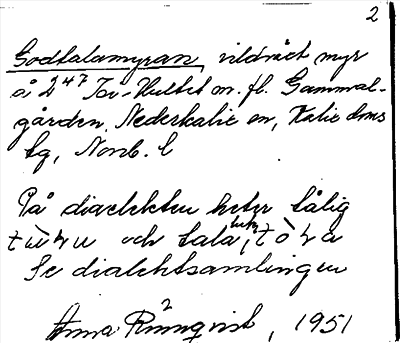 2
Godtalamyran, vildväxt myr
å 2⁴⁷ Tor-Hultet m. fl. Gammal-
gården, Nederkalix sn, Kalix dms
tg, Norrb. l
På dialekten heter tålig
och tala
Se dialektsamlingen
Anna Rönnqvist, 1951